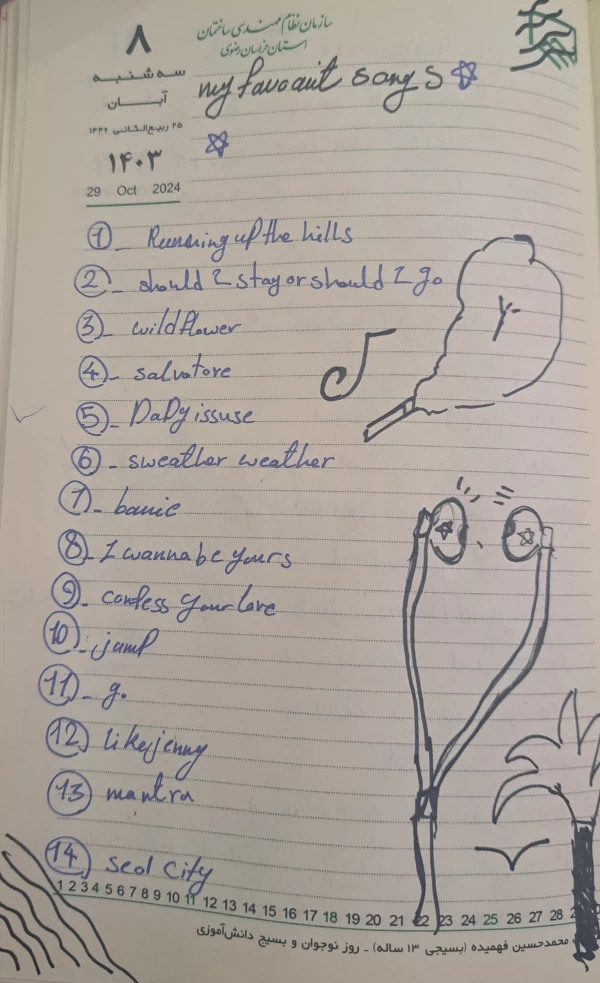 ۸
سه شنبه
آبـــان
۲۵ ربیع‌الثانی ۱۴۴۶
۱۴۰۳
29 Oct 2024
سازمان نظام مهندسی ساختمان
استان خراسان رضوی
my favoarit songs
1 _ Running up the hills
2 - should I stay or should I go
3 - wildflower
4 - salvatore
5 - Dady issuse
6 - sweather weather
7 - banie
8 - I wanna be yours
9 - confess your love
10 - jump
11 - go
12 likejenny
13 mantra
14 Seol City
1 2 3 4 5 6 7 8 9 10 11 12 13 14 15 16 17 18 19 20 21 22 23 24 25 26 27 28
محمدحسین فهمیده (بسیجی ۱۳ ساله) - روز نوجوان و بسیج دانش‌آموزی